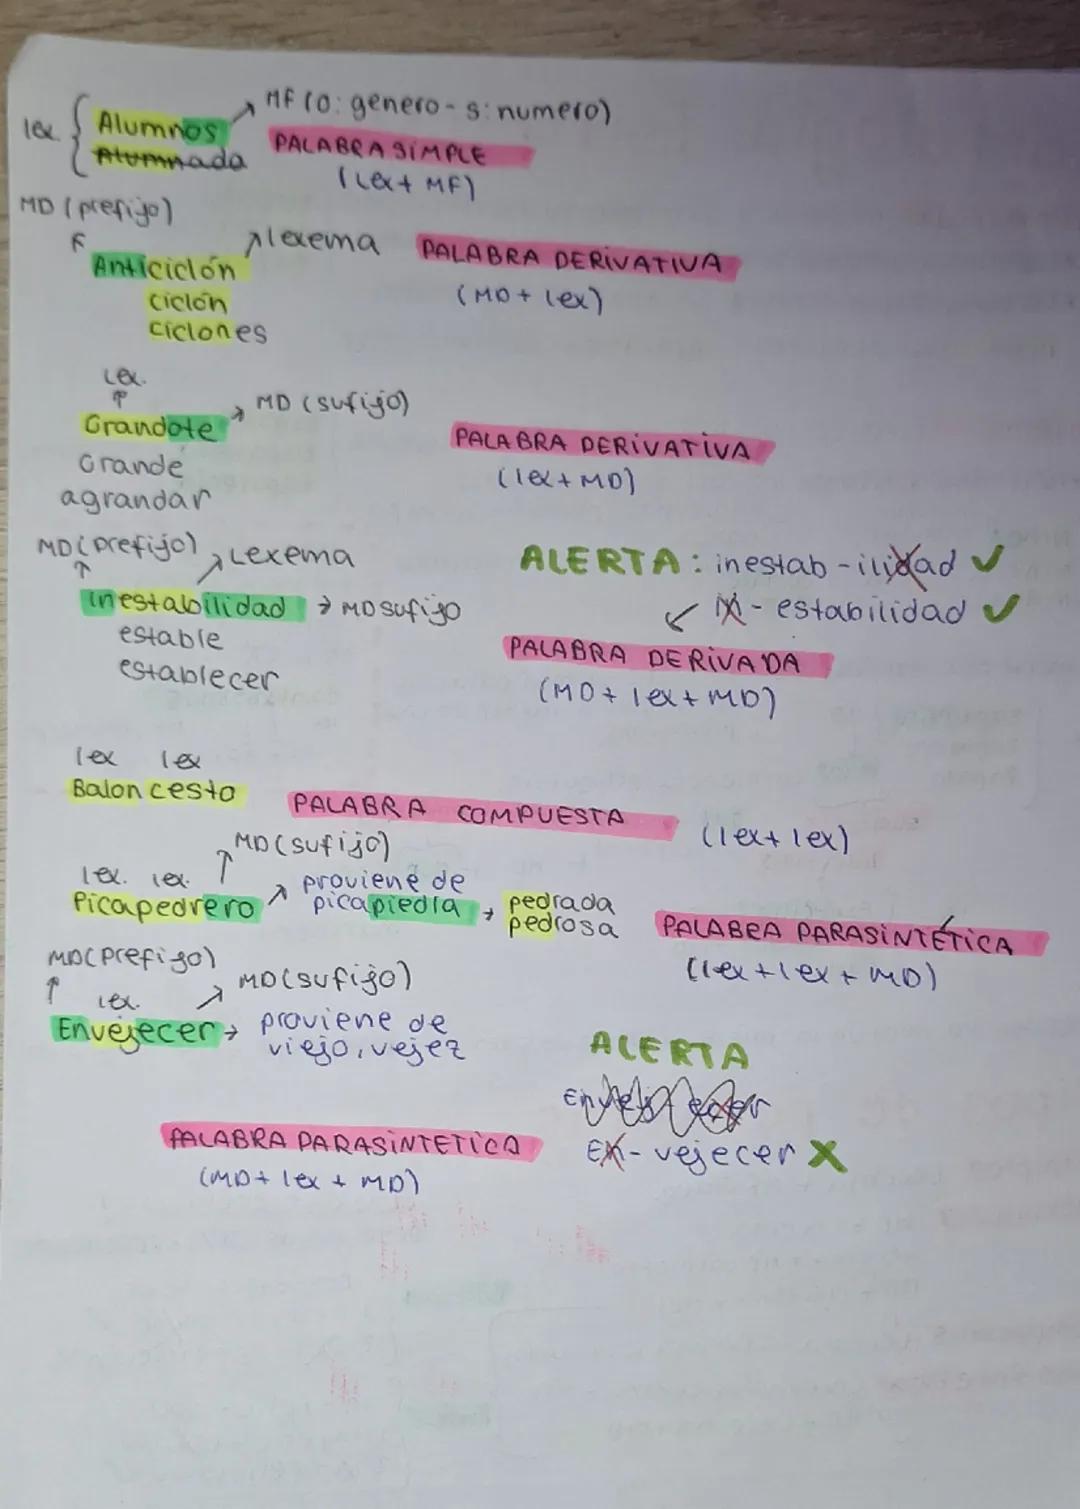 MF (o: genero - s: numero)
lex. { Alumnos
Alumnada
PALABRA SIMPLE
(Lex + MF)
MD (prefijo)
lexema
PALABRA DERIVATIVA
Anticiclón
(MD + lex)
ciclón
ciclones
Lex.
MD (sufijo)
Grandote
PALABRA DERIVATIVA
Grande
(lex + MD)
agrandar
MD (prefijo)
Lexema
ALERTA: inestab - ilidad ✓
inestabilidad → MD sufijo
in - estabilidad ✓
estable
PALABRA DERIVADA
establecer
(MD + lex + MD)
lex lex
Baloncesto
PALABRA COMPUESTA
(lex + lex)
MD (sufijo)
lex. lex.
Picapedrero
proviene de
picapiedra → pedrada
pedrosa
PALABRA PARASINTÉTICA
(lex + lex + MD)
MD (prefijo)
lex.
MD (sufijo)
Envejecer → proviene de
viejo, vejez
ALERTA
En - vejecer X
PALABRA PARASINTETICA
(MD + lex + MD)